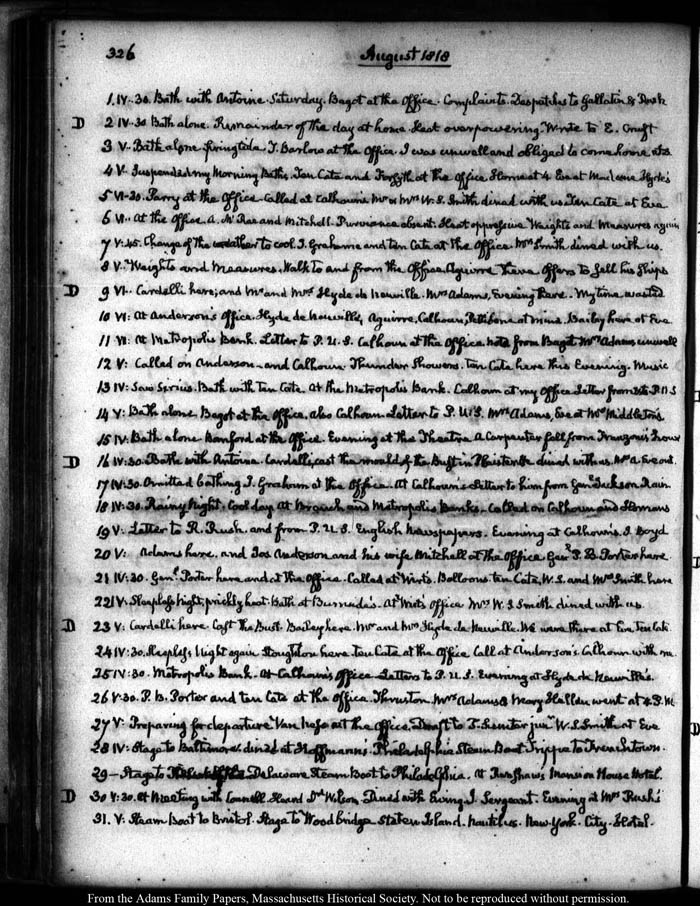 326 August 1818
1. IV:30. Bath with Antoine. Saturday. Bagot at the Office. Complaints. Despatches to Gallatin & Rush
D 2 IV:30 Bath alone. Remainder of the day at home. Heat overpowering. Wrote to E. Cruft
3 V. Bath alone. Spring tide. J. Barlow at the Office. I was unwell and obliged to come home at
4 V. Suspended my Morning Baths. Ten Cate and Forsyth at the Office. Home at 4 Eve at Madame Hyde's
5 VI:30. Parry at the Office. Called at Calhoun's. Mr. & Mrs. W. S. Smith dined with us. Ten Cate at Eve
6 VI. At the Office. A. McRae and Mitchell. Purviance absent. Heat oppressive. Weights and Measures again
7 V:45. Change of the weather to cool. J. Grahame and ten Cate at the Office. Mrs. Smith dined with us.
8 V. Weights and Measures. Walk to and from the Office. Aguirre there. Offers to sell his Ships
D 9 VI. Cardelli here; and Mr. and Mrs. Hyde de Neuville. Mrs. Adams, Evening there. My time wasted
10 VI: At Anderson's Office. Hyde de Neuville, Aguirre, Calhoun, Pettibone at mine. Bailey here at Eve
11 VI: At Metropolis Bank. Letter to P. U. S. Calhoun at the Office. Note from Bagot. Mrs. Adams unwell
12 V: Called on Anderson and Calhoun. Thunder Showers. ten Cate here this Evening. Music
13 IV: Saw Sirius. Bath with ten Cate. At the Metropolis Bank. Calhoun at my Office. Letter from & to P. U. S
14 V: Bath alone. Bagot at the Office, also Calhoun. Letter to P. U. S. Mrs. Adams, Eve at Mrs. Middleton's
15 IV: Bath alone. Sanford at the Office. Evening at the Theatre. A Carpenter fell from Tranzoni's House
D 16 IV:30. Bath with Antoine. Cardelli, cast the mould of the Bust in Plaister. He dined with us. Mrs. A. Eve out.
17 IV:30. Omitted bathing. J. Graham at the Office. At Calhoun's. Letter to him from Genl. Jackson. Rain
18 IV:30. Rainy Night. Cool day. At Branch and Metropolis Banks. Called on Calhoun and Homans
19 V: Letter to R. Rush, and from P. U. S. English Newspapers. Evening at Calhoun's. J. Boyd
20 V: Adams here, and Jos. Anderson and his wife. Mitchell at the Office. Genl. P. B. Porter here
21 IV:30. Genl. Porter here and at the Office. Called at Wirt's. Balloons. ten Cate, W. S. and Mrs. Smith here
22 IV: Sleepless Night, prickly heat. Bath at Burnside's. At Wirt's Office. Mrs. W. S. Smith dined with us.
D 23 V: Cardelli here. Cast the Bust. Bailey here. Mr. and Mrs. Hyde de Neuville. We were there at Eve. Ten Cate.
24 IV:30. Sleepless Night again. Stoughton here. ten Cate at the Office. Call at Anderson's. Calhoun with me.
25 IV:30. Metropolis Bank. At Calhoun's Office. Letters to P. U. S. Evening at Hyde de Neuville's.
26 V:30. P. B. Porter and ten Cate at the Office. Thruston. Mrs. Adams & Mary Hellen went at 4 P. M.
27 V: Preparing for departure. Van Ness at the Office. Draft to T. Senter junr. W. S. Smith at Eve
28 IV: Stage to Baltimore. dined at Hoffman's. Philadelphia Steam Boat. Trippe to Frenchtown.
29 Stage to Delaware Steam Boat to Philadelphia. At Renshaw's Mansion House Hotel.
D 30 V:30. At Meeting with Connell. Heard Dr. Wilson. Dined with Ewing. J. Sergeant. Evening at Mrs. Rush's
31. V: Steam Boat to Bristol. Stage to Wood bridge. Staten Island. Nautilus. New-York. City-Hotel.
From the Adams Family Papers, Massachusetts Historical Society. Not to be reproduced without permission.